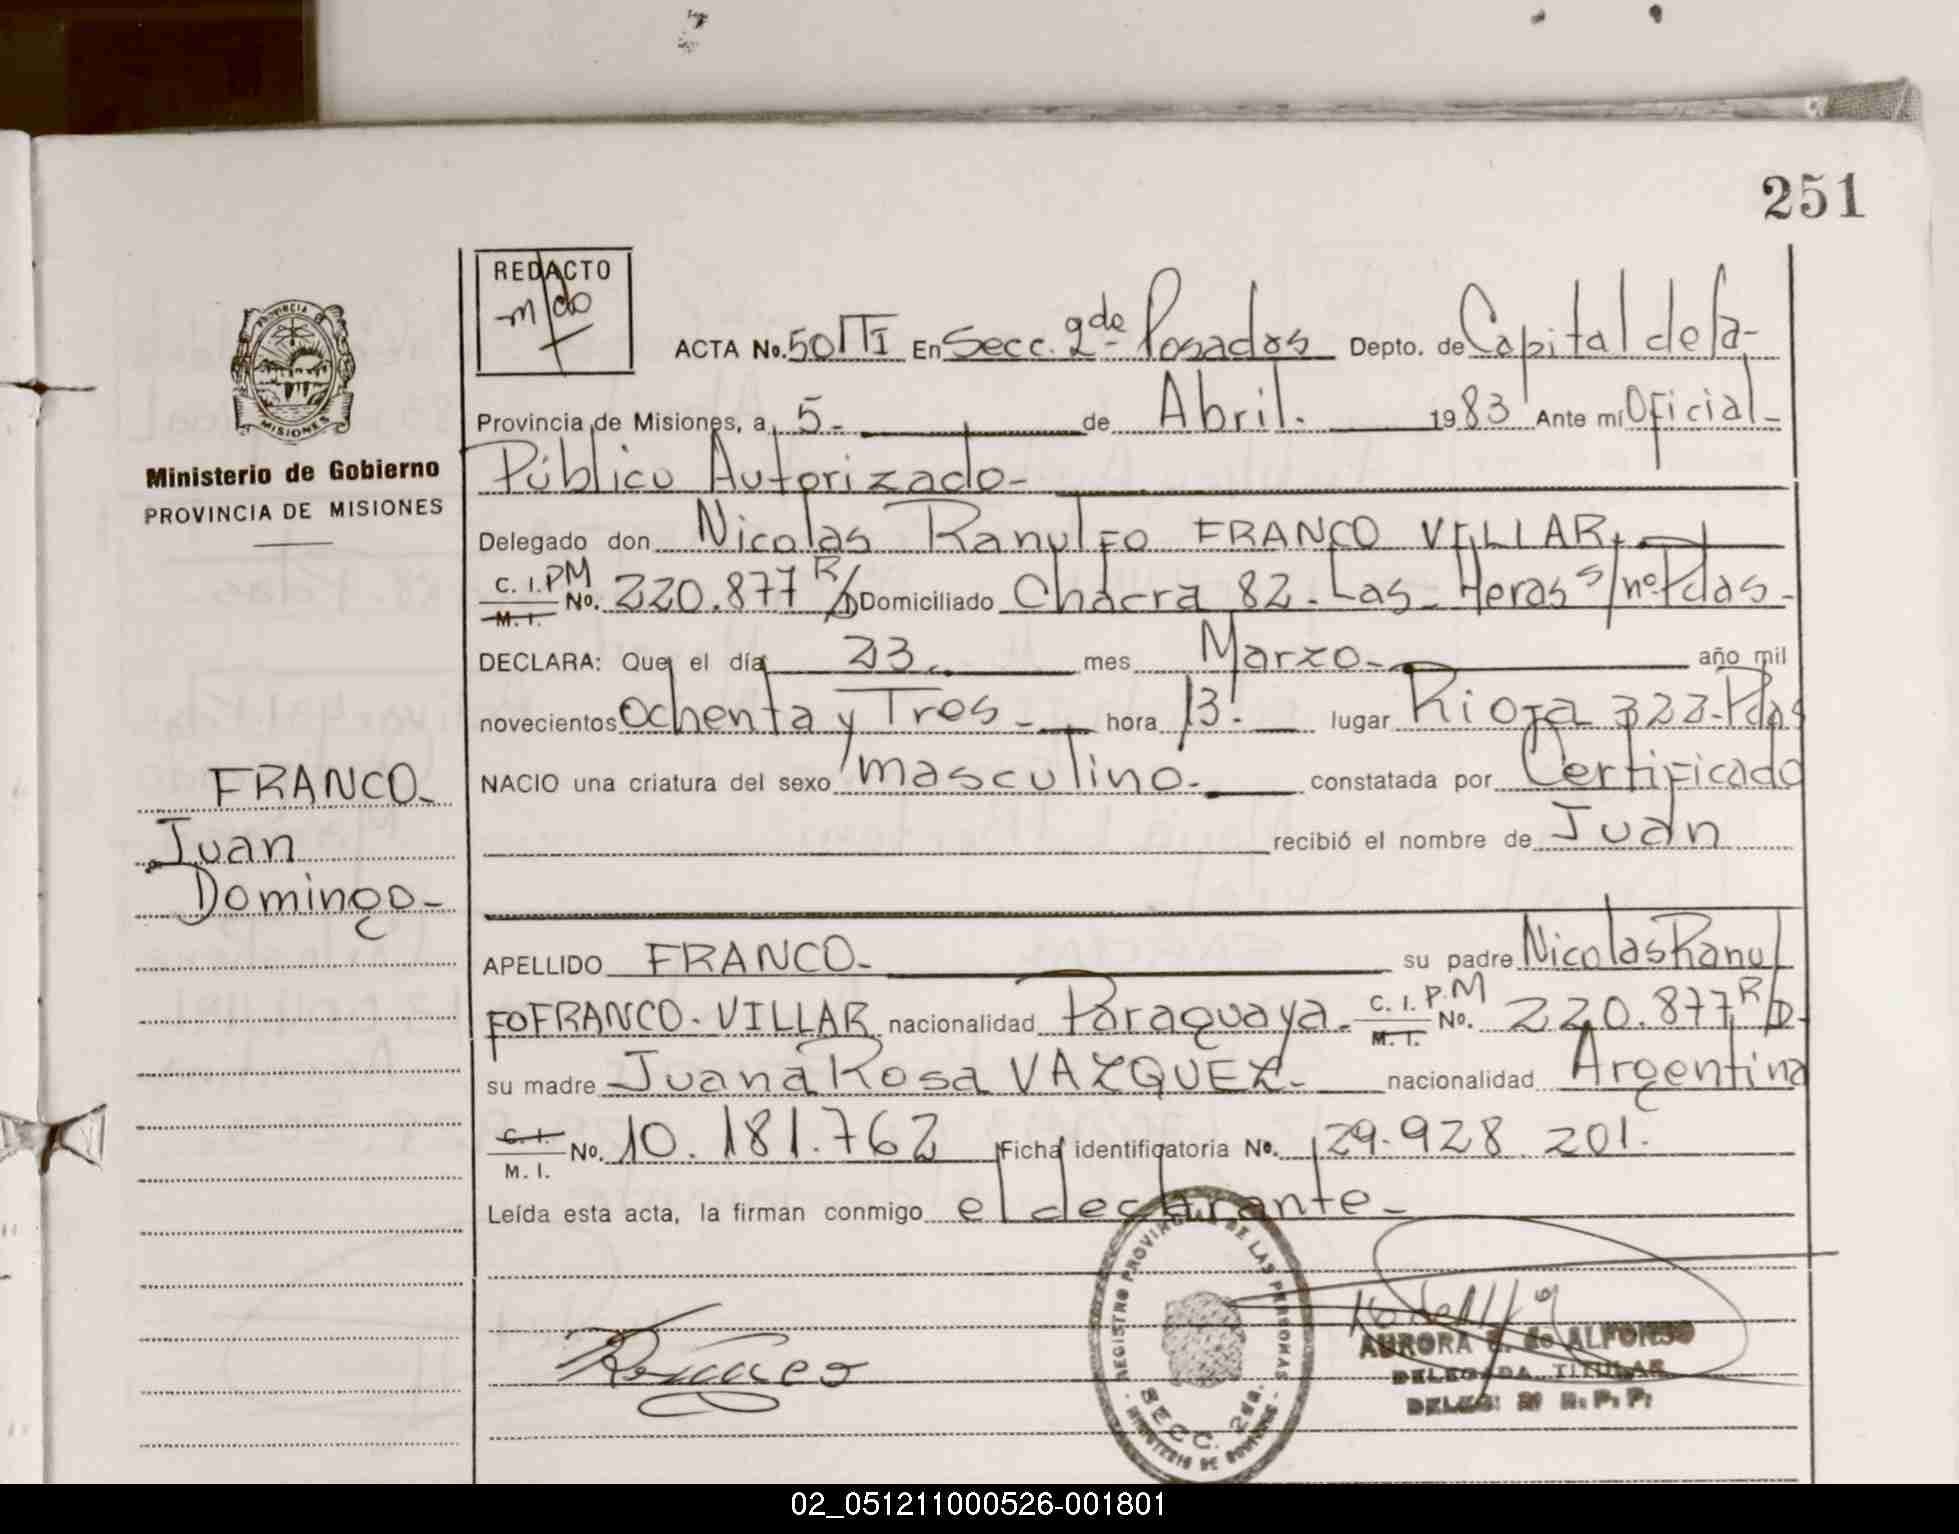 251
REDACTO
ACTA No. 501 TI En Secc. 2da Posadas Depto. de Capital de la-
Provincia de Misiones, a 5- de Abril. 1983 Ante mí Oficial-
Público Autorizado-
Ministerio de Gobierno
PROVINCIA DE MISIONES
Delegado don Nicolas Ranulfo FRANCO VILLAR.
C. I. PM
M. I. No. 220.877 R/D Domiciliado Chacra 82- Las- Heras s/nº Pdas-
DECLARA: Que el día 23. mes Marzo- año mil
novecientos ochenta y Tres- hora 13. lugar Rioja 322-Pdas
NACIO una criatura del sexo masculino- constatada por Certificado
recibió el nombre de Juan
FRANCO-
Juan
Domingo-
APELLIDO FRANCO- su padre Nicolas Ranul
fo FRANCO-VILLAR nacionalidad Paraguaya- C. I. P.M
M. I. No. 220.877 R/D-
su madre Juana Rosa VAZQUEZ- nacionalidad Argentina
C. I.
M. I. No. 10.181.762 Ficha identificatoria No. 29.928.201.
Leída esta acta, la firman conmigo el declarante-
REGISTRO PROVINCIAL DE LAS PERSONAS
SECC. 2da.
MINISTERIO DE GOBIERNO
AURORA de ALFONSO
DELEGADA TITULAR
DELEG: R. P. P.
02_051211000526-001801